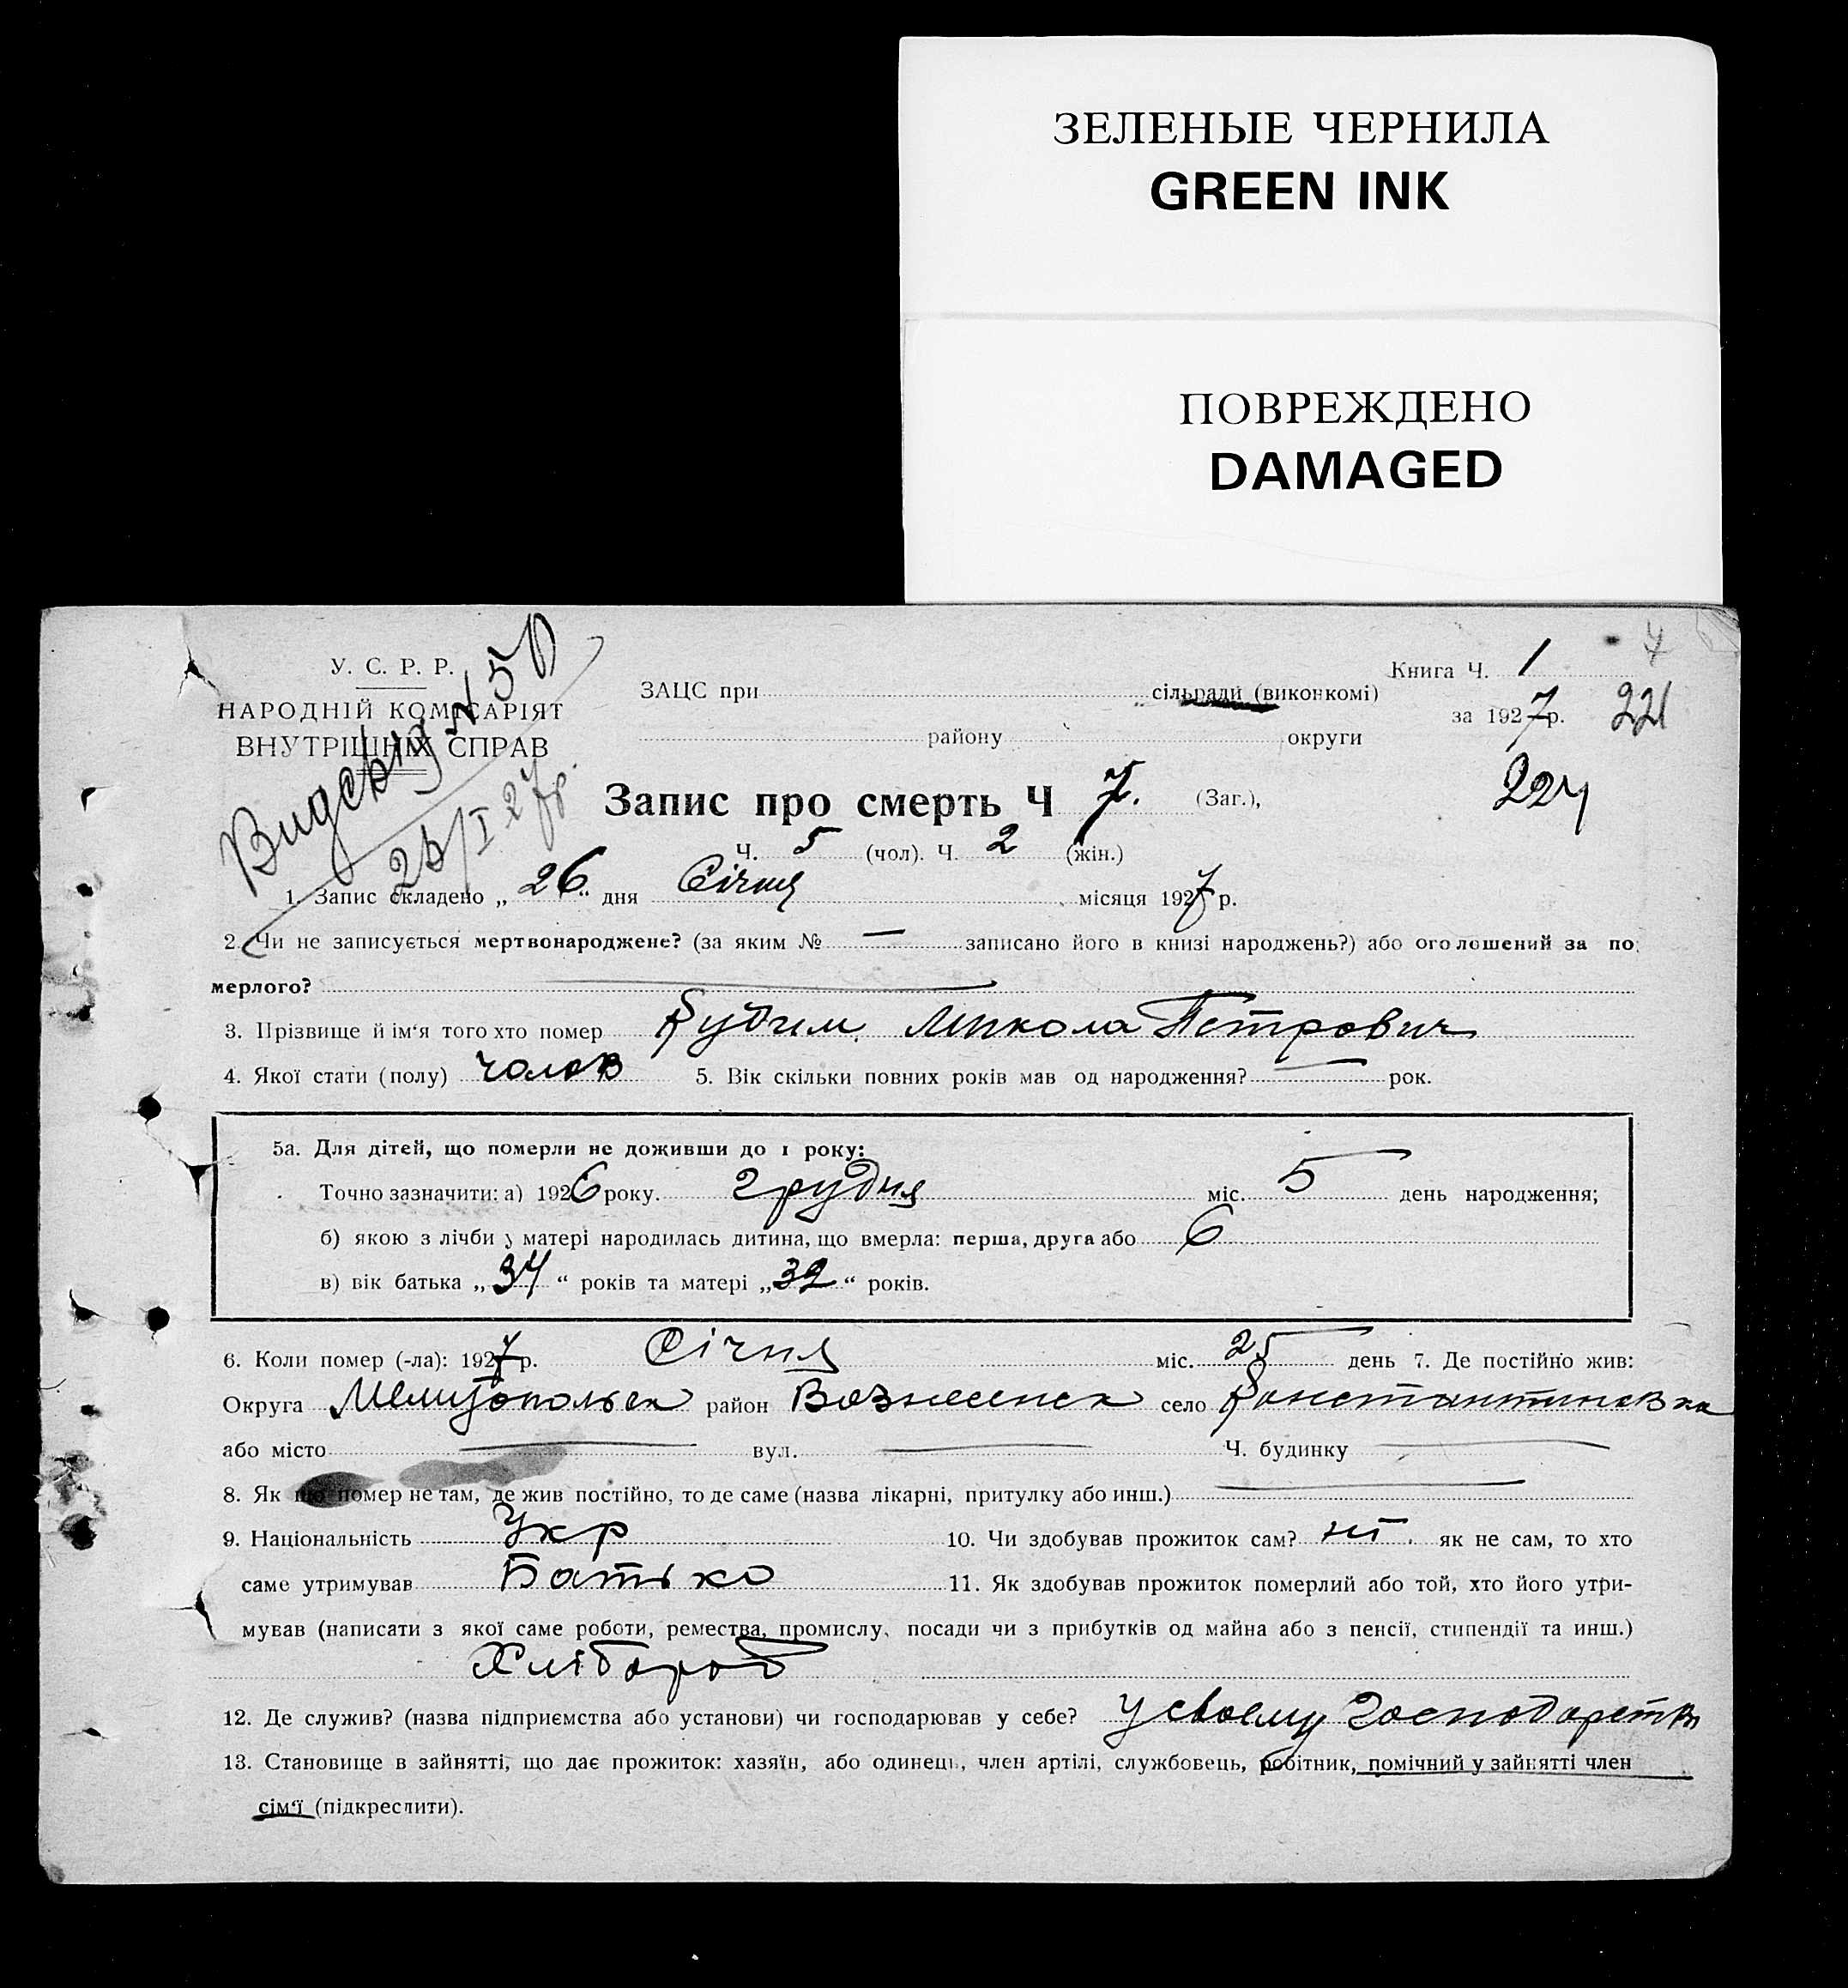 ЗЕЛЕНЫЕ ЧЕРНИЛА
GREEN INK
ПОВРЕЖДЕНО
DAMAGED
У. С. Р. Р.
НАРОДНІЙ КОМІСАРІЯТ
ВНУТРІШНІХ СПРАВ
ЗАЦС при сільради (виконкомі)
району округи
Книга Ч. 1
за 1927 р. 221
7
224
Запис про смерть Ч 7. (Заг.),
Ч. 5 (чол). Ч. 2 (жін.)
1. Запис складено „ 26 “ дня Січня місяця 1927 р.
2. Чи не записується мертвонароджене? (за яким № — записано його в книзі народжень?) або оголошений за по
мерлого?
3. Прізвище й ім‘я того хто помер Микола Петрович
4. Якої стати (полу) чолов 5. Вік скільки повних років мав од народження? — рок.
5а. Для дітей, що померли не доживши до 1 року:
Точно зазначити: а) 1926 року. грудня міс. 5 день народження;
б) якою з лічби у матері народилась дитина, що вмерла: перша, друга або 6
в) вік батька „ 34 “ років та матері „ 32 “ років.
6. Коли помер (-ла): 1927 р. Січня міс. 25 день 7. Де постійно жив:
Округа Мелитопольск район Вознесенск село Константиновка
або місто — вул. — Ч. будинку —
8. Як що помер не там, де жив постійно, то де саме (назва лікарні, притулку або инш.) —
9. Національність Укр 10. Чи здобував прожиток сам? ні. як не сам, то хто
саме утримував Батько 11. Як здобував прожиток померлий або той, хто його утри-
мував (написати з якої саме роботи, ремества, промислу, посади чи з прибутків од майна або з пенсії, стипендії та инш.)
Хлібороб
12. Де служив? (назва підприємства або установи) чи господарював у себе? у своему господарстві
13. Становище в зайнятті, що дає прожиток: хазяїн, або одинець, член артілі, службовець, робітник, помічний у зайнятті член
сім‘ї (підкреслити).